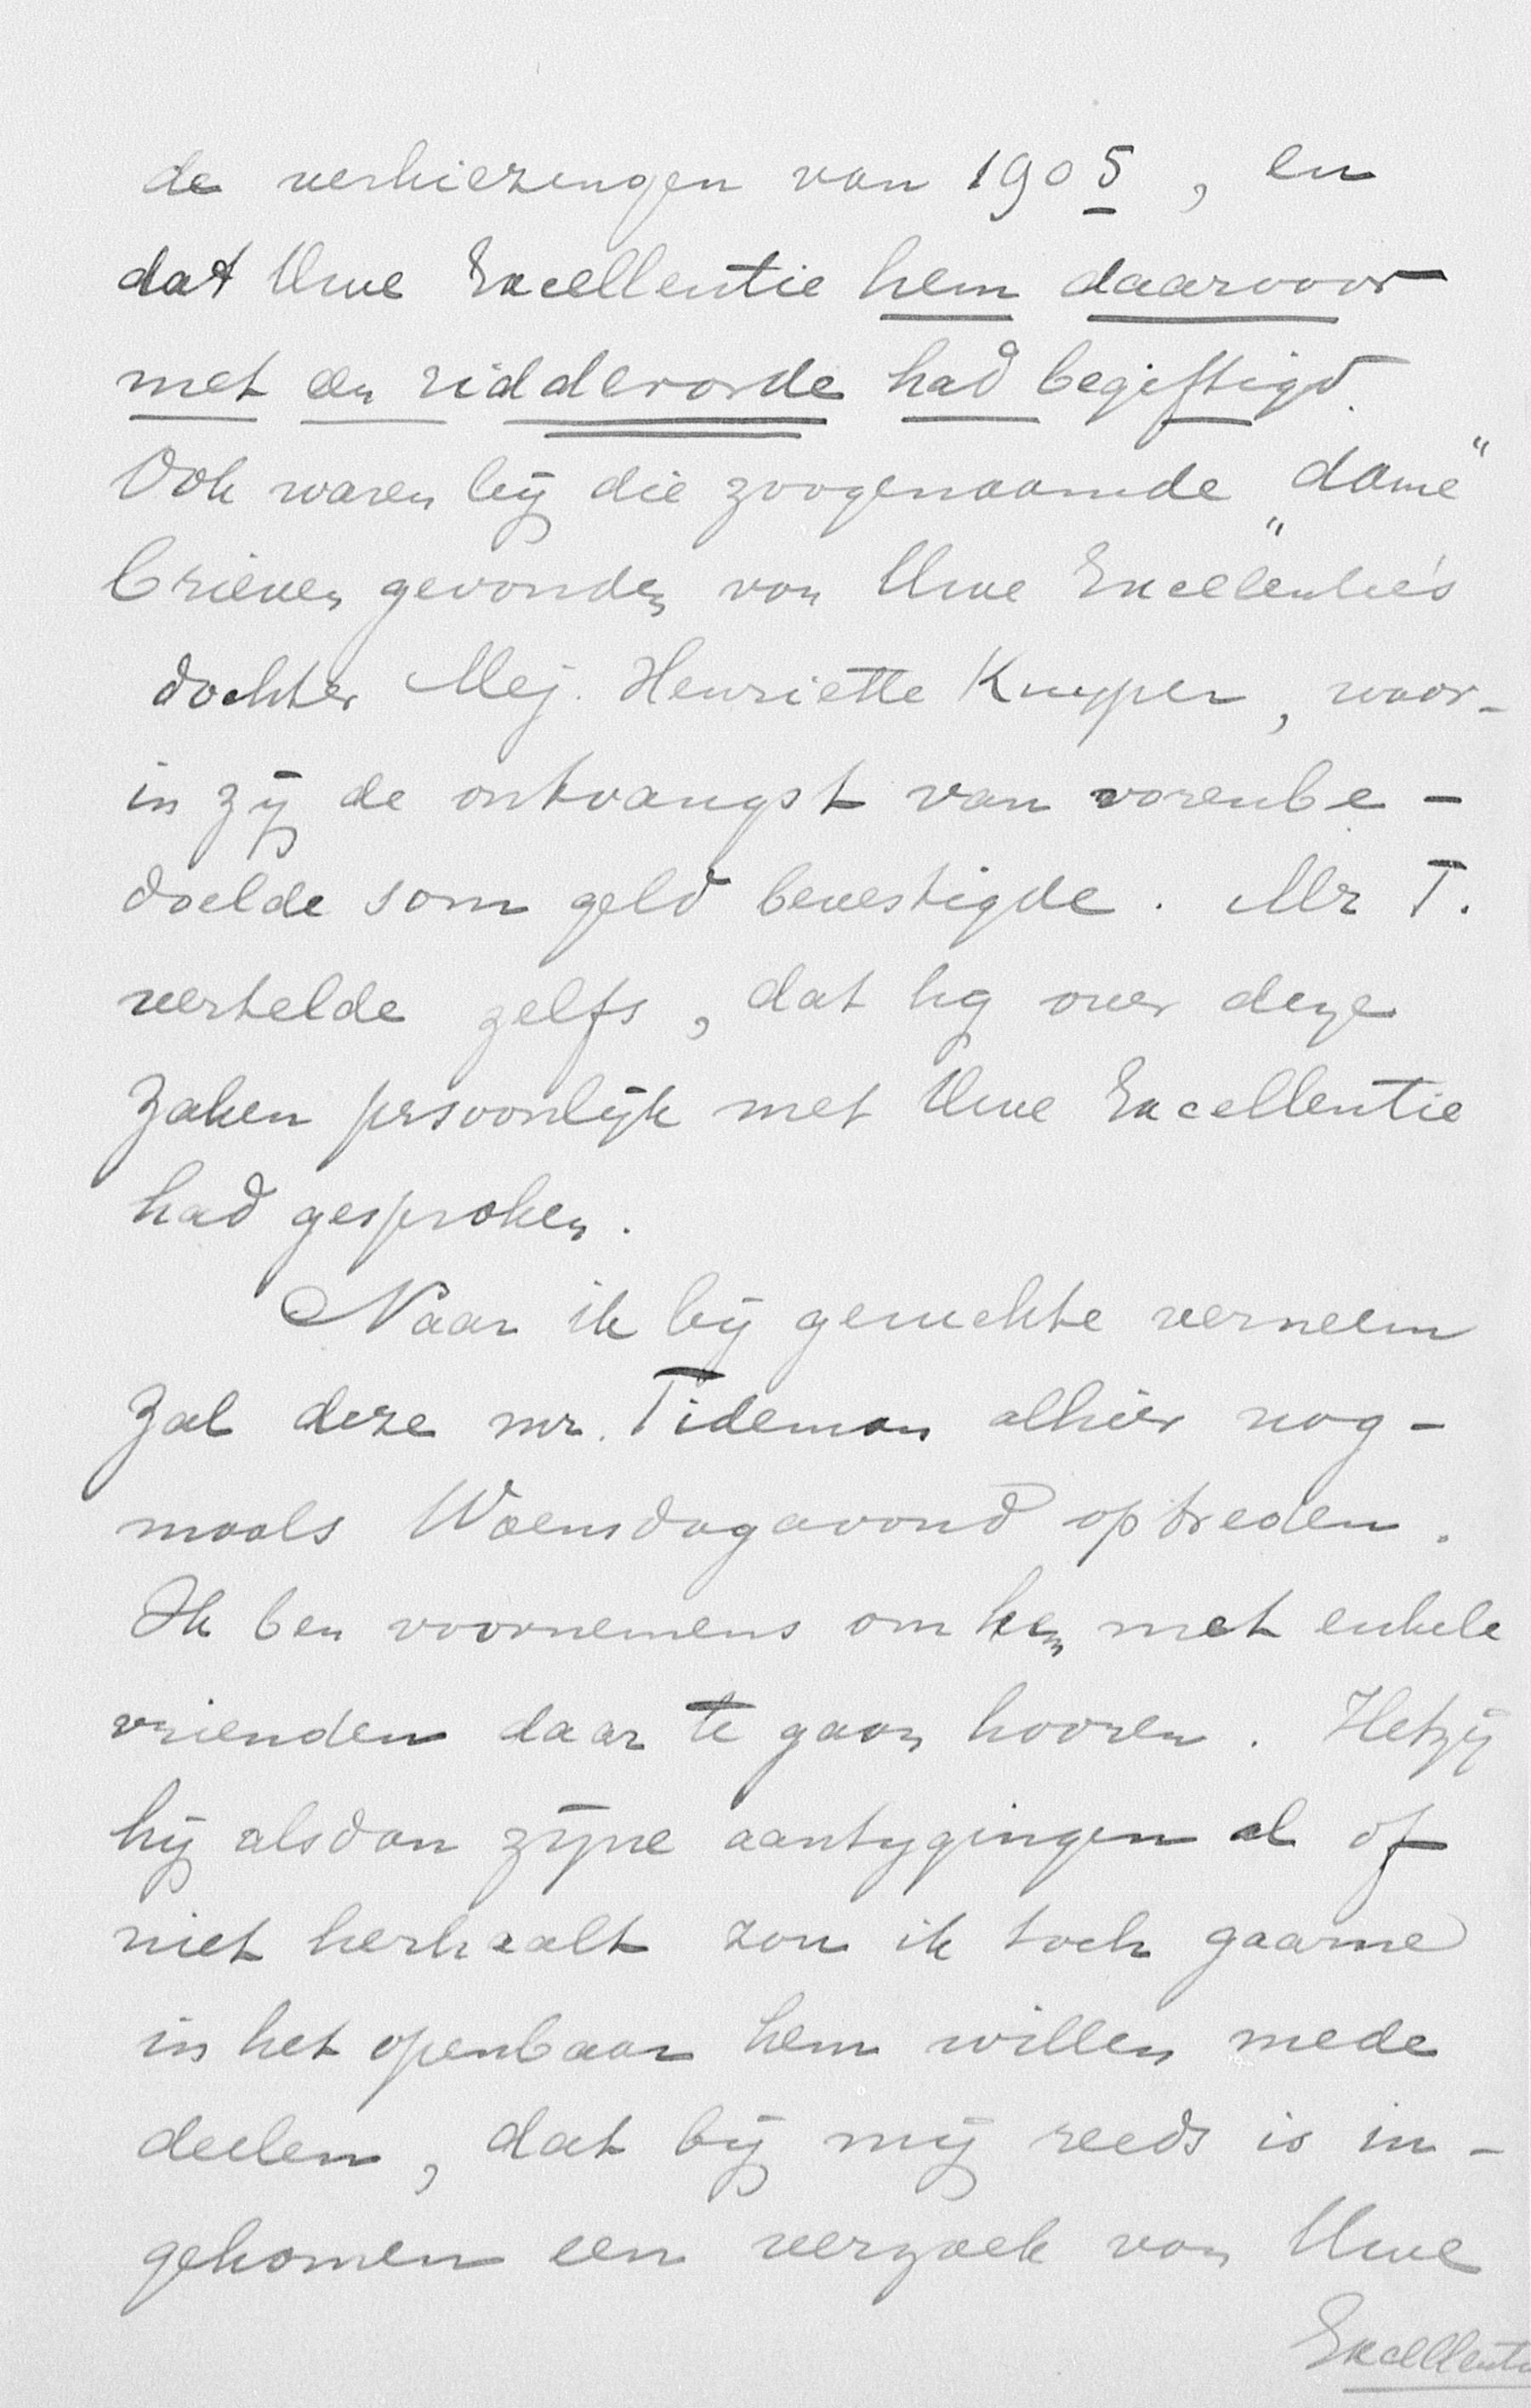 de verkiezingen van 1905, en
dat Uwe Excellentie hem daarvoor
met een ridderorde had begiftigd.
Ook waren bij die zoogenaamde „dame”
brieven gevonden van Uwe Excellentie's
dochter Mej. Henriette Kuyper, waar-
in zij de ontvangst van vorenbe-
doelde som geld bevestigde. Mr T.
vertelde zelfs, dat hij over deze
zaken persoonlijk met Uwe Excellentie
had gesproken.
Naar ik bij geruchte verneem
zal deze mr. Tideman alhier nog-
maals Woensdagavond optreden.
Ik ben voornemens om hem met enkele
vrienden daar te gaan hooren. Hetzij
hij alsdan zijne aantygingen al of
niet herhaalt zou ik toch gaarne
in het openbaar hem willen mede
deelen, dat bij mij reeds is in-
gekomen een verzoek van Uwe
Excellentie